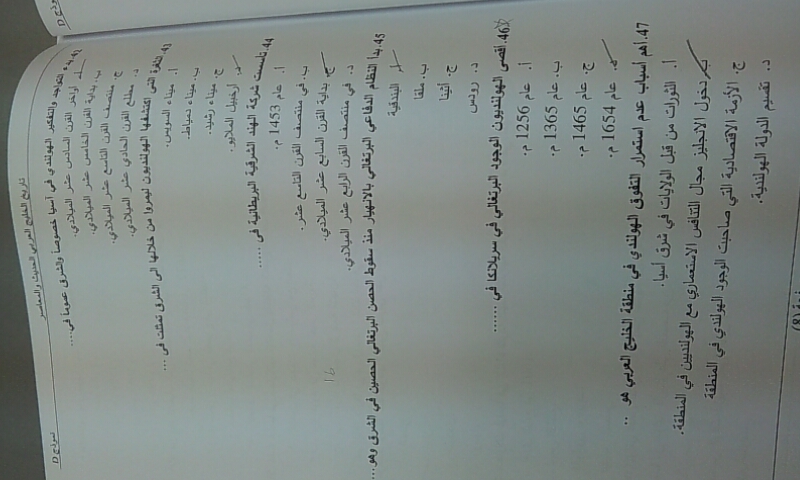 نموذج D
تاريخ الخليج العربي الحديث والمعاصر
نموذج D
42. بدء التواجد والتفكير الهولندي في آسيا خصوصاً والشرق عموماً في....
أ. أوئل القرن السادس عشر الميلادي.
ب. بداية القرن الخامس عشر الميلادي.
ج. منتصف القرن التاسع عشر الميلادي.
د. مطلع القرن الحادي عشر الميلادي.
43. الثغرة التي اكتشفها الهولنديون ليمروا من خلالها الى الشرق تمثلت في ...
أ. ميناء السويس.
ب. ميناء دمياط.
ج. ميناء رشيد.
د. أرخبيل الملايو.
44. تأسست شركة الهند الشرقية البريطانية في ......
أ. عام 1453 م.
ب. في منتصف القرن التاسع عشر.
ج. بداية القرن السابع عشر الميلادي.
د. في منتصف القرن الرابع عشر الميلادي.
16
45. بدأ النظام الدفاعي البرتغالي بالانهيار منذ سقوط الحصن البرتغالي الحصين في الشرق وهو...
أ. البندقية
ب. ملقا
ج. أثينا
د. رودس
46. أقصى الهولنديون الوجود البرتغالي في سريلانكا في ......
أ. عام 1256 م.
ب. عام 1365 م.
ج. عام 1465 م.
د. عام 1654 م.
47. أهم أسباب عدم استمرار التفوق الهولندي في منطقة الخليج العربي هو ..
أ. الثورات من قبل الولايات في شرق آسيا.
ب. دخول الانجليز مجال التنافس الاستعماري مع الهولنديين في المنطقة.
ج. الأزمة الاقتصادية التي صاحبت الوجود الهولندي في المنطقة
د. تقسيم الدولة الهولندية.
(8)